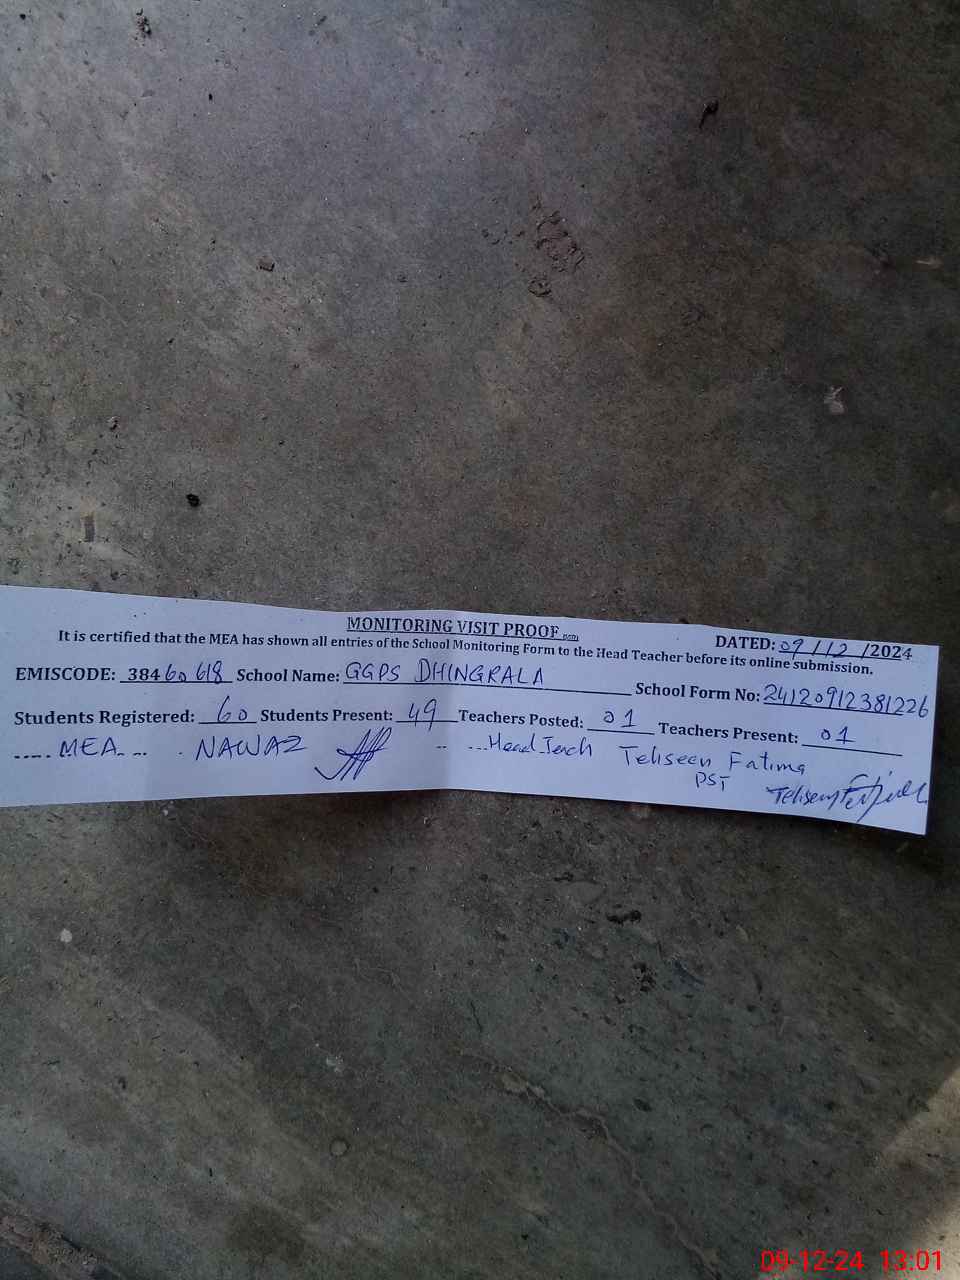 MONITORING VISIT PROOF
DATED: 09/12/2024
It is certified that the MEA has shown all entries of the School Monitoring Form to the Head Teacher before its online submission.
EMISCODE: 38460618 School Name: GGPS DHINGRALA School Form No: 24120912381226
Students Registered: 60 Students Present: 49 Teachers Posted: 01 Teachers Present: 01
..... MEA.. ... . NAWAZ .. ...Head Teach Tehseen Fatima
PST
09-12-24 13:01